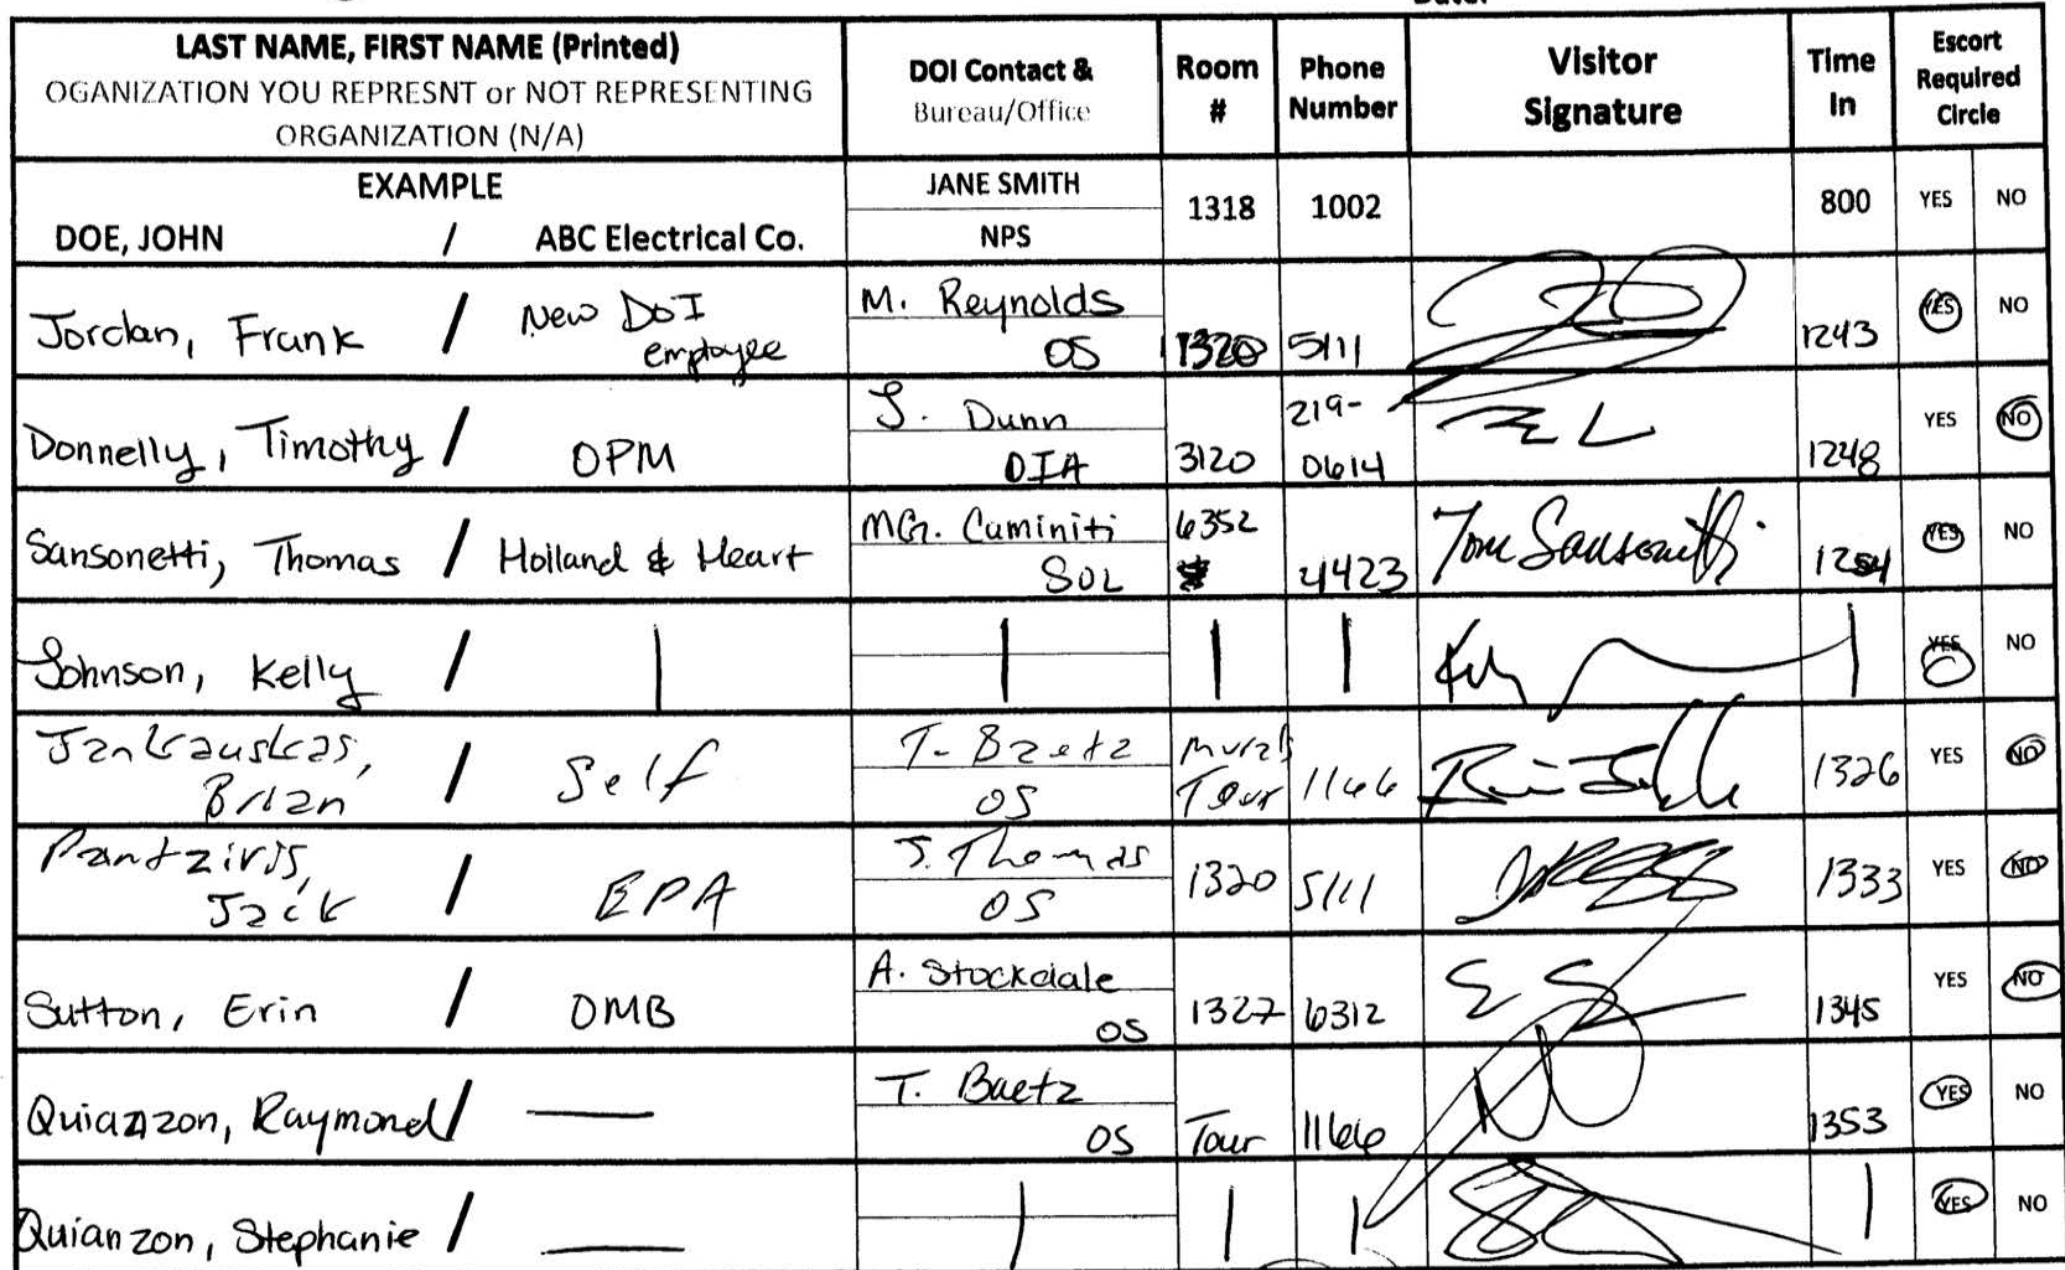 LAST NAME, FIRST NAME (Printed)
OGANIZATION YOU REPRESNT or NOT REPRESENTING
ORGANIZATION (N/A)
DOI Contact &
Bureau/Office
Room
#
Phone
Number
Visitor
Signature
Time
In
Escort
Required
Circle
EXAMPLE
DOE, JOHN / ABC Electrical Co.
JANE SMITH
NPS
1318
1002
800
YES NO
Jordan, Frank / New DOI
employee
M. Reynolds
OS
1320
5111
1243
YES NO
Donnelly, Timothy / OPM
J. Dunn
OIA
3120
219-
0614
1248
YES NO
Sansonetti, Thomas / Holland & Heart
MGr. Caminiti
SOL
6352
4423
Tom Sansonetti
1254
YES NO
Johnson, Kelly /
YES NO
Jankauskas,
Brian / Self
T. Baetz
OS
Mural
Tour
1166
1326
YES NO
Pantziris,
Jack / EPA
J. Thomas
OS
1320
5111
1333
YES NO
Sutton, Erin / OMB
A. Stockdale
OS
1327
6312
1345
YES NO
Quianzon, Raymond / —
T. Baetz
OS
Tour
1166
1353
YES NO
Quianzon, Stephanie / —
YES NO